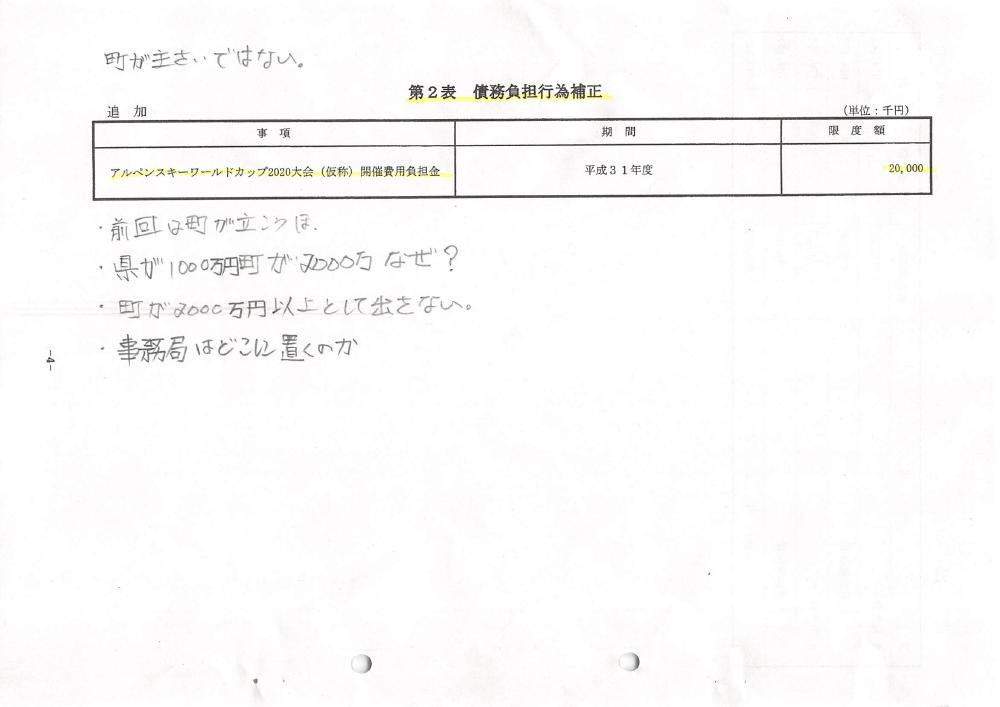 町が主さいではない。
第２表　債務負担行為補正
追　加
（単位：千円）
事　項　期　間　限　度　額
アルペンスキーワールドカップ2020大会（仮称）開催費用負担金　平成３１年度　20,000
・前回は町が立こうほ.
・県が1000万円町が2000万 なぜ？
・町が2000万円以上として出さない。
・事務局はどこに置くのか
-4-